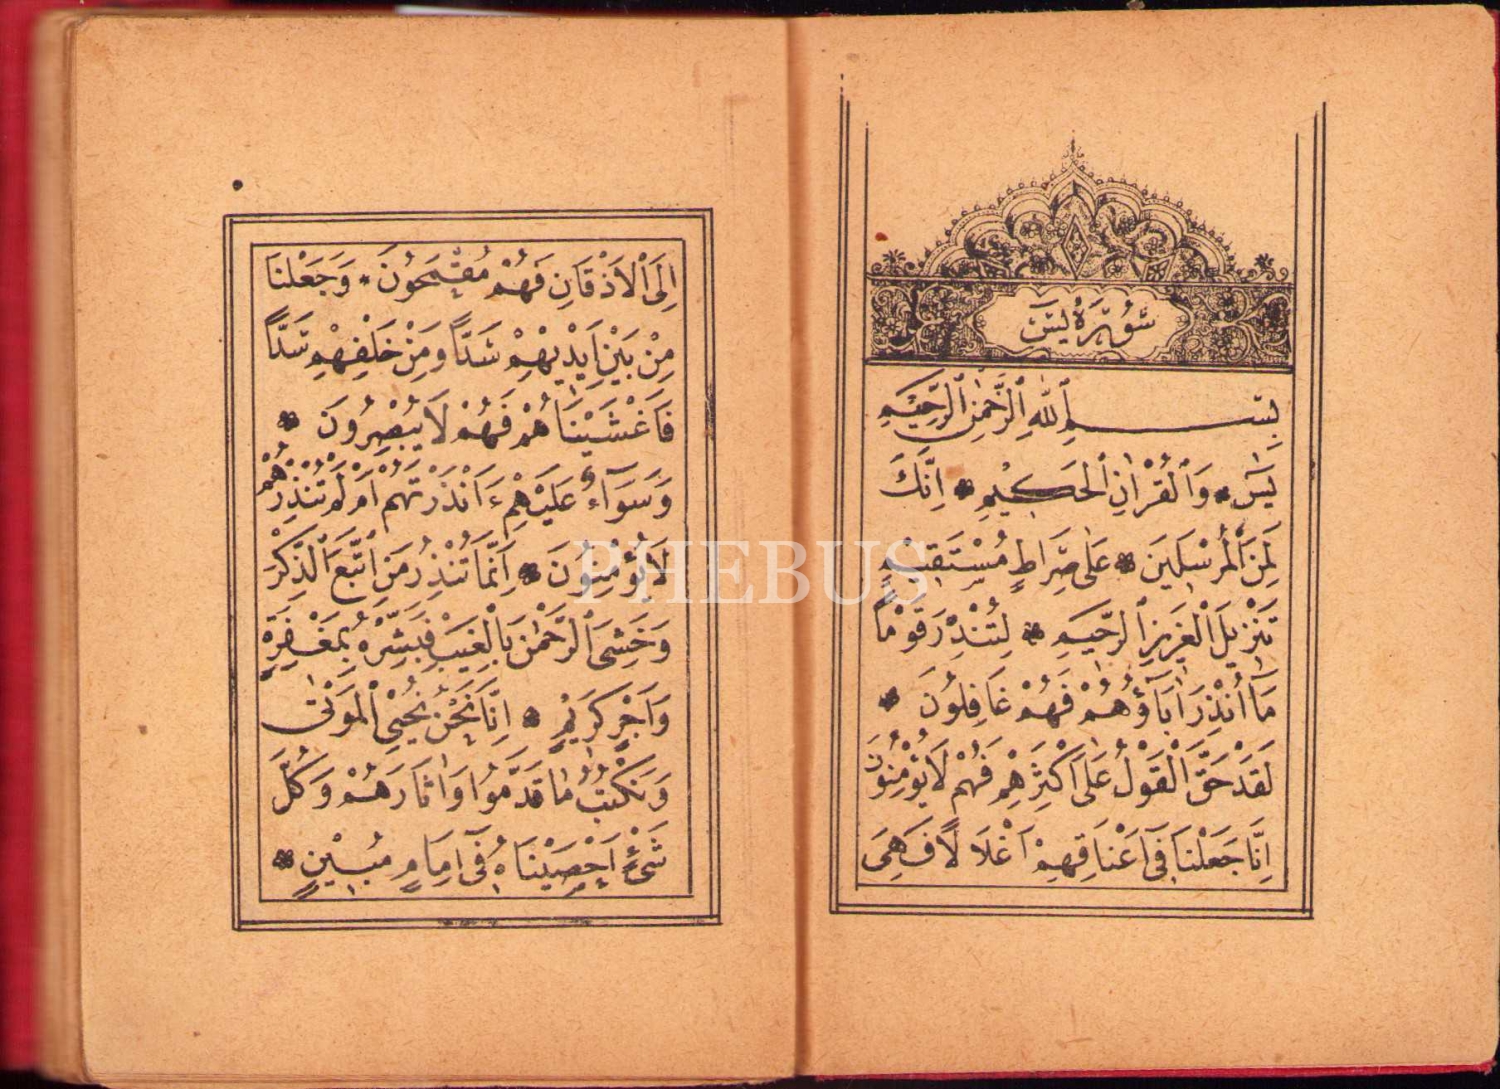 سُورَةُ يٰسٓ
بِسْمِ اللّٰهِ الرَّحْمٰنِ الرَّحِيمِ
يٰسٓ * وَالْقُرْاٰنِ الْحَكِيمِ * اِنَّكَ
لَمِنَ الْمُرْسَلِينَ * عَلٰى صِرَاطٍ مُسْتَقِيمٍ
تَنْزِيلَ الْعَزِيزِ الرَّحِيمِ * لِتُنْذِرَ قَوْمًا
مَٓا اُنْذِرَ اٰبَٓاؤُهُمْ فَهُمْ غَافِلُونَ *
لَقَدْ حَقَّ الْقَوْلُ عَلٰى اَكْثَرِهِمْ فَهُمْ لَا يُؤْمِنُونَ
اِنَّا جَعَلْنَا فٓى اَعْنَاقِهِمْ اَغْلَالًا فَهِىَ
اِلَى الْاَذْقَانِ فَهُمْ مُقْمَحُونَ * وَجَعَلْنَا
مِنْ بَيْنِ اَيْدِيهِمْ سَدًّا وَمِنْ خَلْفِهِمْ سَدًّا
فَاَغْشَيْنَاهُمْ فَهُمْ لَا يُبْصِرُونَ *
وَسَوَٓاءٌ عَلَيْهِمْ ءَاَنْذَرْتَهُمْ اَمْ لَمْ تُنْذِرْهُمْ
لَا يُؤْمِنُونَ * اِنَّمَا تُنْذِرُ مَنِ اتَّبَعَ الذِّكْرَ
وَخَشِىَ الرَّحْمٰنَ بِالْغَيْبِ فَبَشِّرْهُ بِمَغْفِرَةٍ
وَاَجْرٍ كَرِيمٍ * اِنَّا نَحْنُ نُحْيِى الْمَوْتٰى
وَنَكْتُبُ مَا قَدَّمُوا وَاٰثَارَهُمْ وَكُلَّ
شَىْءٍ اَحْصَيْنَاهُ فٓى اِمَامٍ مُبِينٍ *
PHEBUS